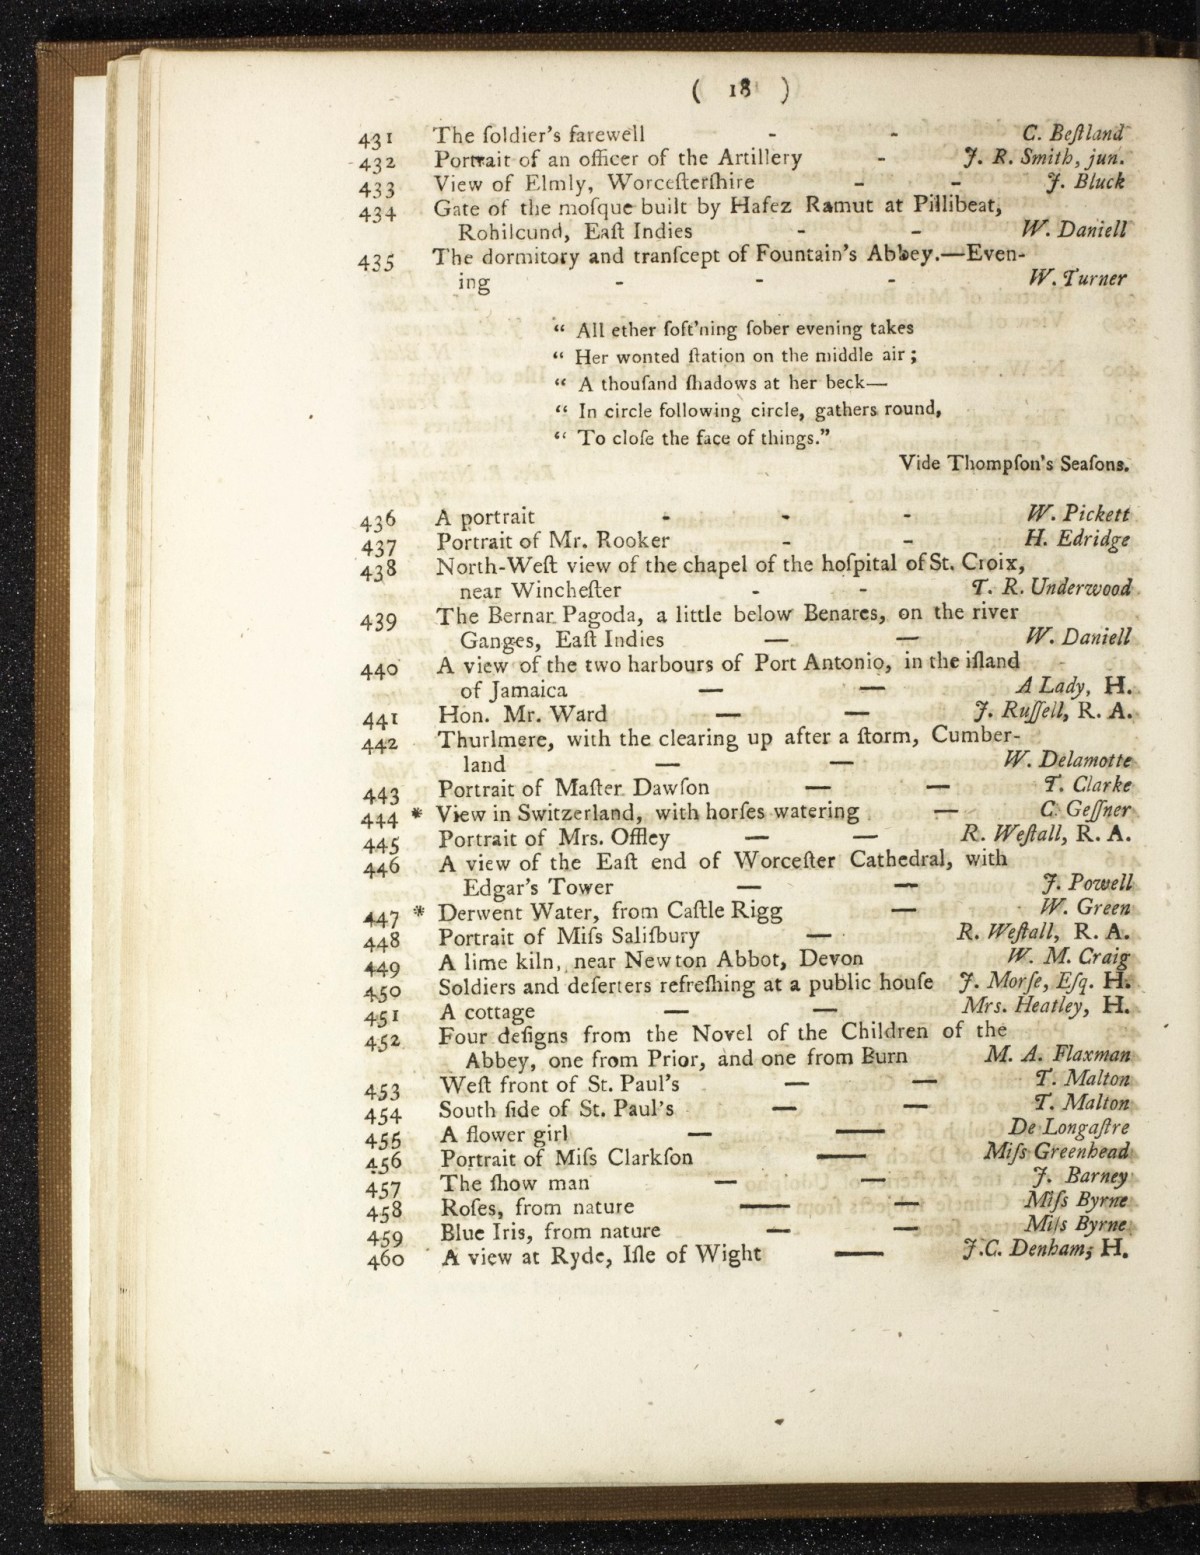 ( 18 )
431 The ſoldier's farewell - - C. Beſtland
432 Portrait of an officer of the Artillery - J. R. Smith, jun.
433 View of Elmly, Worceſterſhire - - J. Bluck
434 Gate of the moſque built by Hafez Ramut at Pillibeat,
Rohilcund, Eaſt Indies - - W. Daniell
435 The dormitory and tranſcept of Fountain's Abbey.—Even-
ing - - - W. Turner
“ All ether ſoft'ning ſober evening takes
“ Her wonted ſtation on the middle air;
“ A thouſand ſhadows at her beck—
“ In circle following circle, gathers round,
“ To cloſe the face of things.”
Vide Thompſon's Seaſons.
436 A portrait - - - W. Pickett
437 Portrait of Mr. Rooker - - H. Edridge
438 North-Weſt view of the chapel of the hoſpital of St. Croix,
near Wincheſter - - T. R. Underwood
439 The Bernar Pagoda, a little below Benares, on the river
Ganges, Eaſt Indies — — W. Daniell
440 A view of the two harbours of Port Antonio, in the iſland
of Jamaica — — A Lady, H.
441 Hon. Mr. Ward — — J. Ruſſell, R. A.
442 Thurlmere, with the clearing up after a ſtorm, Cumber-
land — — W. Delamotte
443 Portrait of Maſter Dawſon — — T. Clarke
444 * View in Switzerland, with horſes watering — C. Geſſner
445 Portrait of Mrs. Offley — — R. Weſtall, R. A.
446 A view of the Eaſt end of Worceſter Cathedral, with
Edgar's Tower — — J. Powell
447 * Derwent Water, from Caſtle Rigg — W. Green
448 Portrait of Miſs Saliſbury — R. Weſtall, R. A.
449 A lime kiln, near Newton Abbot, Devon W. M. Craig
450 Soldiers and deſerters refreſhing at a public houſe J. Morſe, Eſq. H.
451 A cottage — — Mrs. Heatley, H.
452 Four deſigns from the Novel of the Children of the
Abbey, one from Prior, and one from Burn M. A. Flaxman
453 Weſt front of St. Paul's — — T. Malton
454 South ſide of St. Paul's — — T. Malton
455 A flower girl — — De Longaſtre
456 Portrait of Miſs Clarkſon — Miſs Greenhead
457 The ſhow man — — J. Barney
458 Roſes, from nature — — Miſs Byrne
459 Blue Iris, from nature — — Miſs Byrne
460 A view at Ryde, Iſle of Wight — J.C. Denham, H.